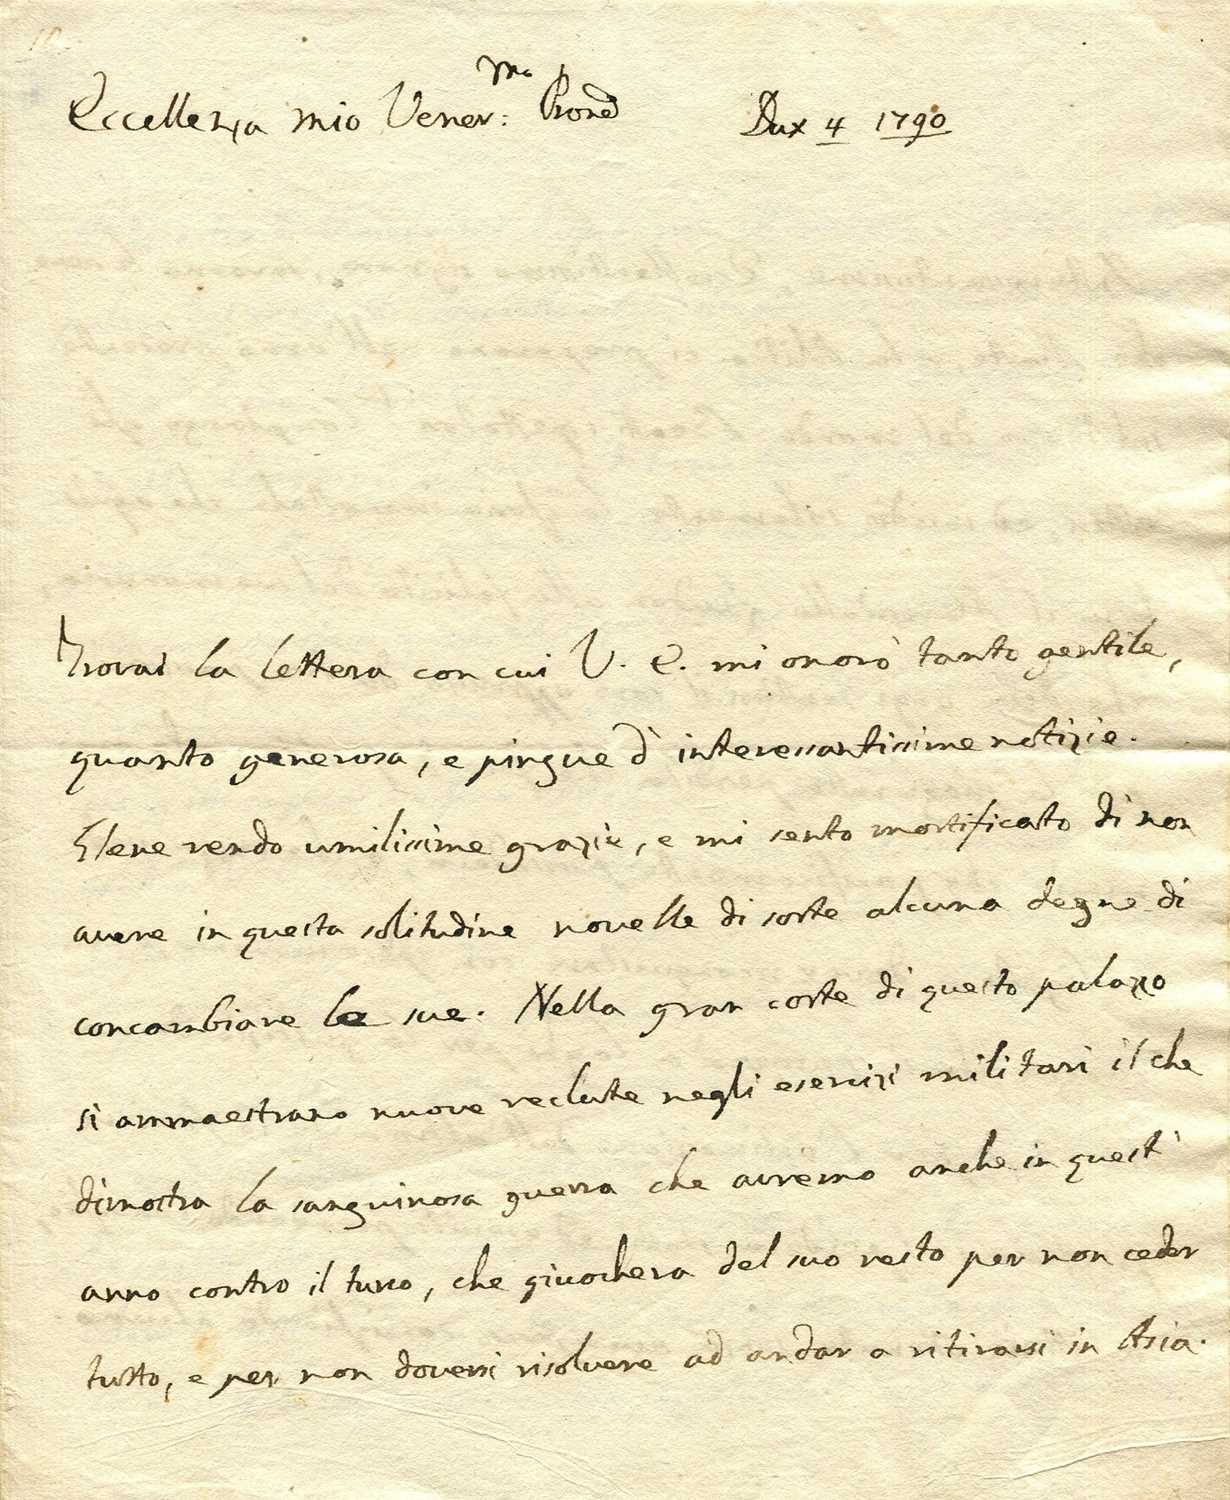 Eccellenza mio Vener:mo Prone
Dux 4 1790
Trovai la lettera con cui V. E. mi onorò tanto gentile,
quanto generosa, e pingue d' interessantissime notizie.
Glene rendo umilissime grazie, e mi sento mortificato di non
avere in questa solitudine novelle di sorte alcuna degne di
concambiare le sue. Nella gran corte di questo palazzo
si ammaestrano nuove reclute negli esercizi militari il che
dimostra la sanguinosa guerra che avremo anche in quest'
anno contro il turco, che giuocherà del suo resto per non ceder
tutto, e per non doversi risolvere ad andar a ritirarsi in Asia.